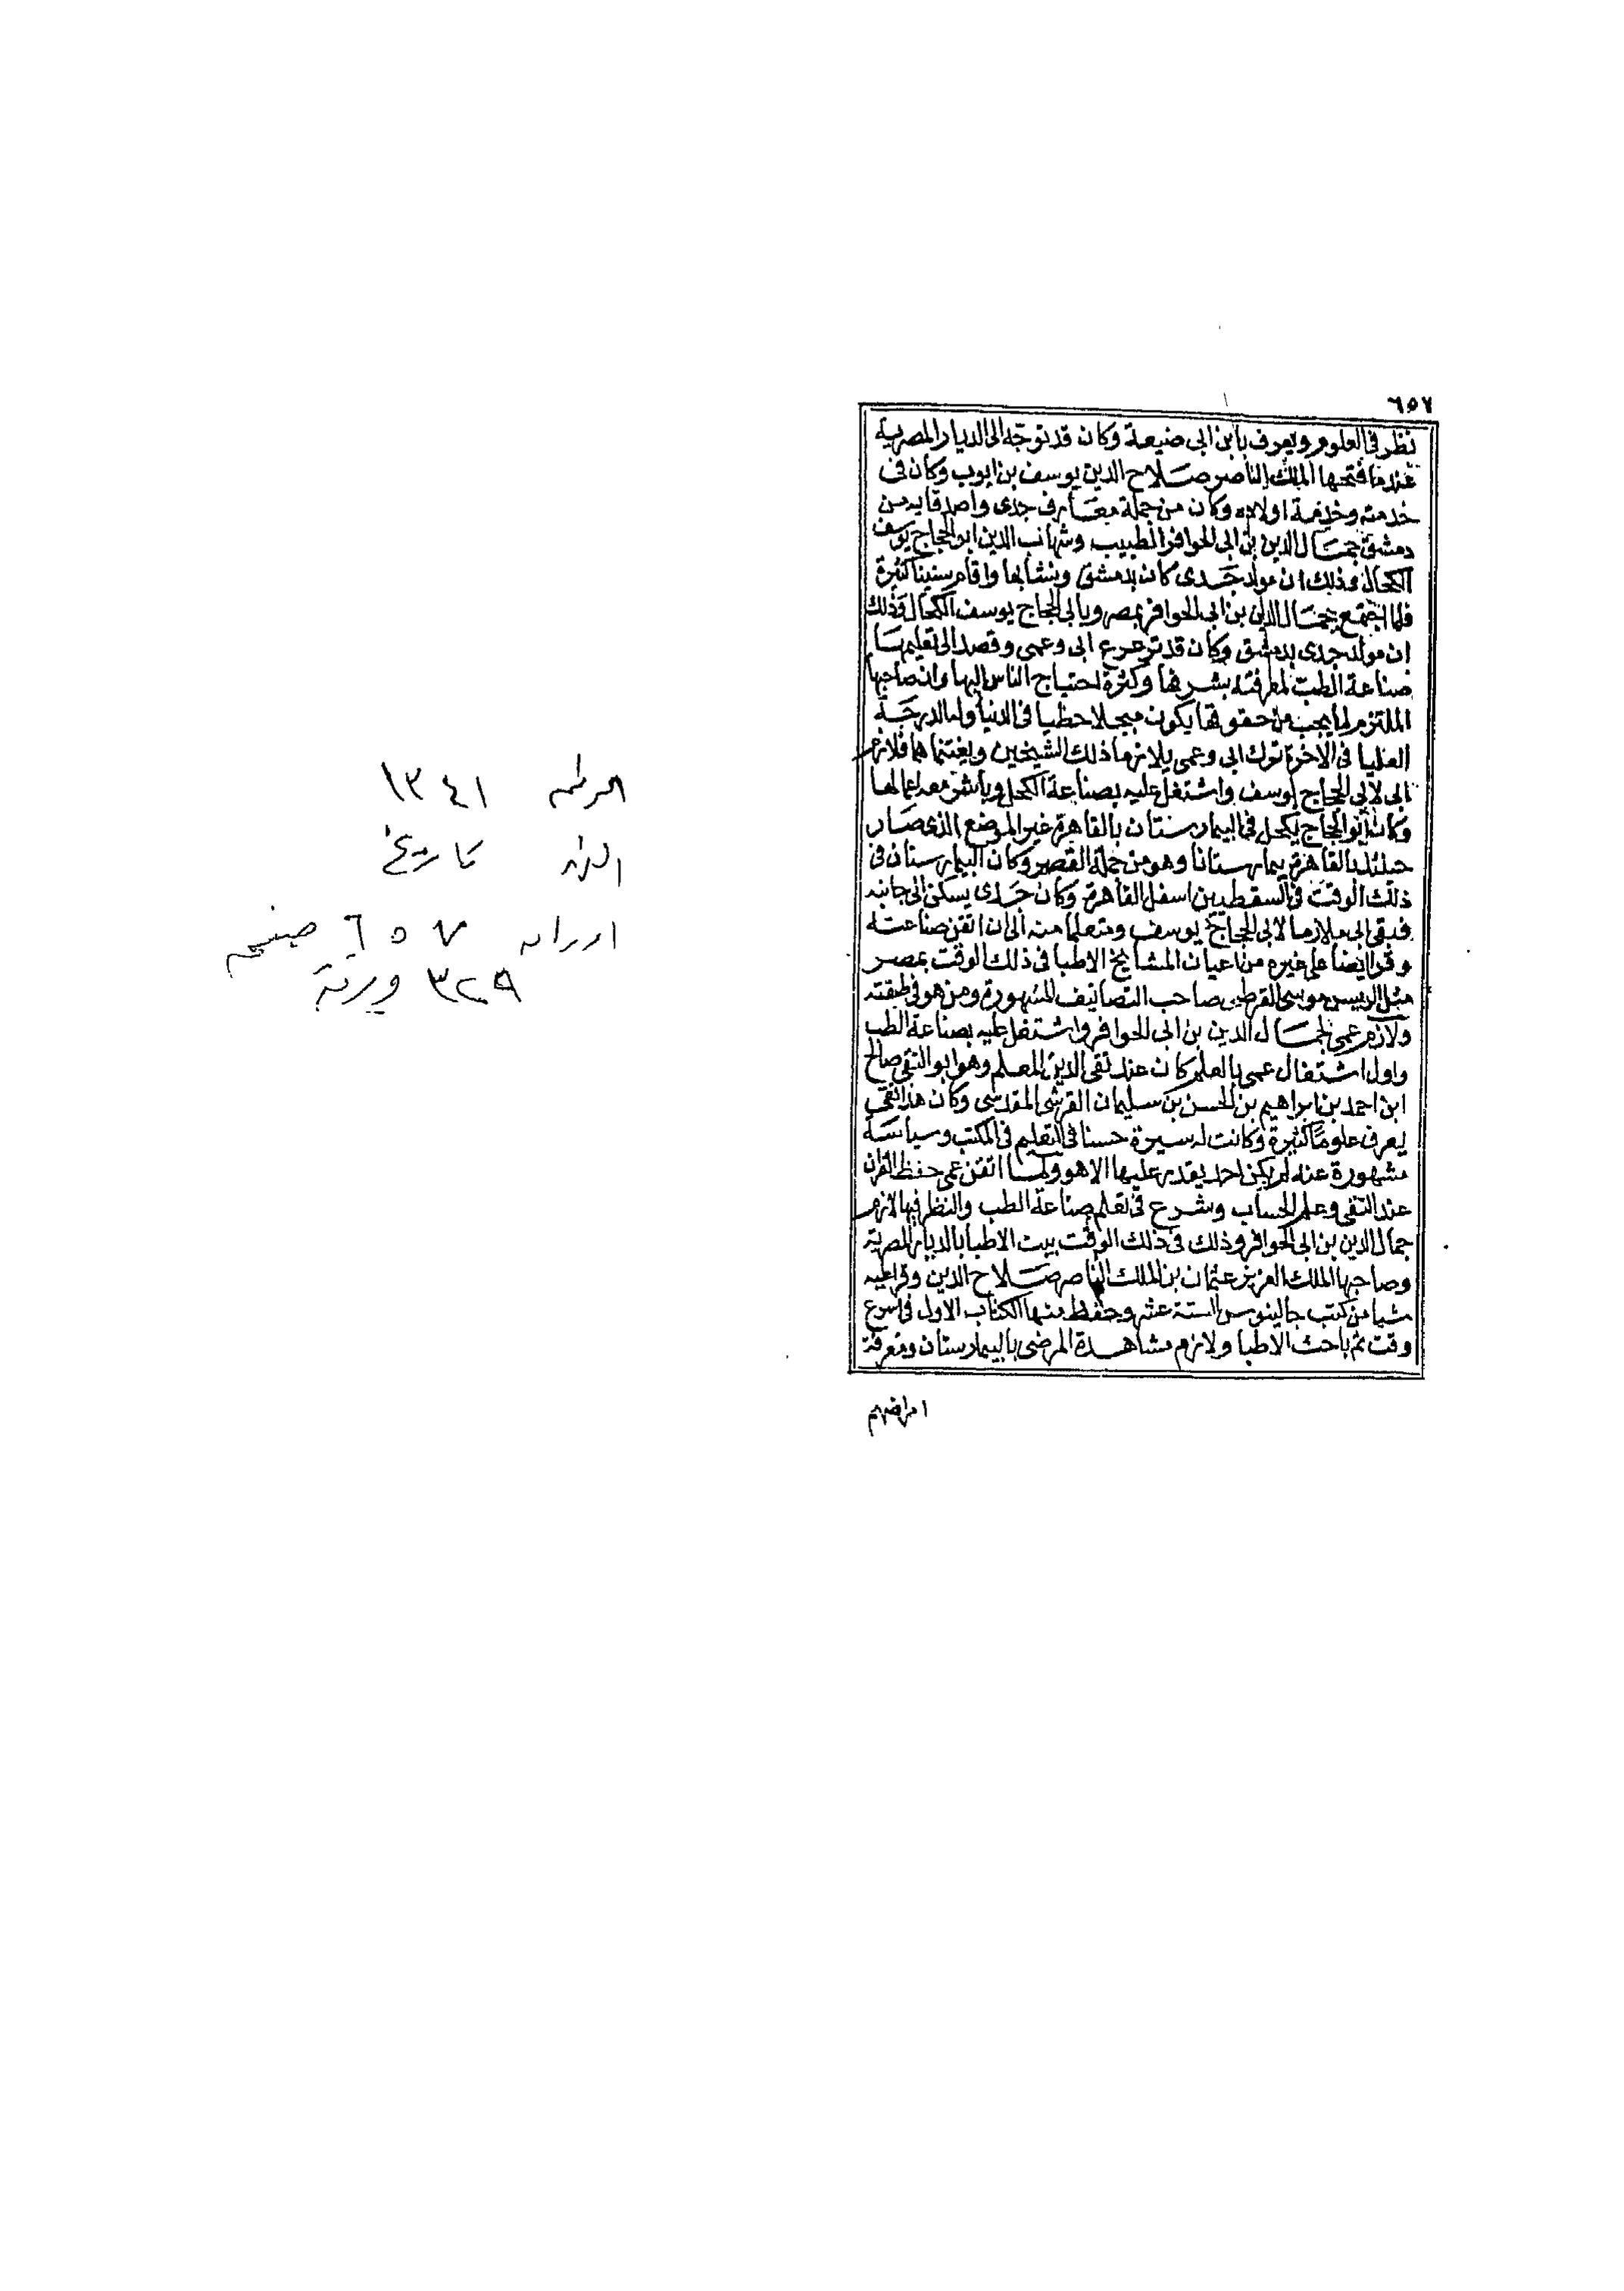 ٦٥٧
نظر فى العلوم ويعرف بابن ابى ضيعة وكان قد توجه الى الديار المصرية
عندما فتحها الملك الناصر صلاح الدين يوسف بن ايوب وكان فى
خدمته وخدمة اولاده وكان من جملة معارف جدى واصدقايه من
دمشق جمال الدين بن ابى الحوافر الطبيب وشهاب الدين ابو الحجاج يوسف
الكحال وذلك ان مولد جدى كان بدمشق ونشا بها واقام سنينا كثيرة
فلما اجتمع بجمال الدين بن ابى الحوافر بمصر وبابى الحجاج يوسف الكحال وذلك
ان مولد جدى بدمشق وكان قد ترعرع ابى وعمى وقصد الى تعليمهما
صناعة الطب لمعرفته بشرفها وكثرة احتياج الناس اليها وان صاحبها
الملتزم لما يجب من حقوقها يكون مبجلا حظيا فى الدنيا وله الدرجة
العليا فى الاخرة ترك ابى وعمى يلازما ذلك الشيخين ويغتنماهما فلازم
ابى لابى الحجاج يوسف واشتغل عليه بصناعة الكحل وباشر معه اعمالها
وكان ابو الحجاج يكحل فى البيمارستان بالقاهرة غير الموضع الذى صار
حينئذ بالقاهرة بيمارستانا وهو من جملة القصر وكان البيمارستان فى
ذلك الوقت فى السقطيين اسفل القاهرة وكان جدى يسكن الى جانبه
فبقى ابى ملازما لابى الحجاج يوسف ومتعلما منه الى ان اتقن صناعته
وقرا ايضا على غيره من اعيان المشايخ الاطبا فى ذلك الوقت بمصر
مثل الريس موسى القرطبى صاحب التصانيف المشهورة ومن هو فى طبقته
ولازم عمى لجمال الدين بن ابى الحوافر واشتغل عليه بصناعة الطب
واول اشتغال عمى بالعلم كان عند تقى الدين المعلم وهو ابو التقى صالح
ابن احمد بن ابراهيم بن الحسن بن سليمان القرشى المقدسى وكان هذا التقى
يعرف علوما كثيرة وكانت له سيرة حسنا فى التعليم فى المكتب وسياسة
مشهورة عنه لم يكن احد يقدر عليها الا هو ولما اتقن عمى حفظ القران
عند التقى وعلم الحساب وشرع فى تعلم صناعة الطب والنظر فيها لازم
جمال الدين بن ابى الحوافر وذلك فى ذلك الوقت بيت الاطبا بالديار المصرية
وصاحبها الملك العزيز عثمان بن الملك الناصر صلاح الدين وقرا عليه
شيا من كتب جالينوس الستة عشر وحفظ منها الكتاب الاول فى اسرع
وقت ثم باحث الاطبا ولازم مشاهدة المرضى بالبيمارستان ومعرفة
امراضهم
١٣٤١
تاريخ
٦٥٧
٣٢٩ ورقة